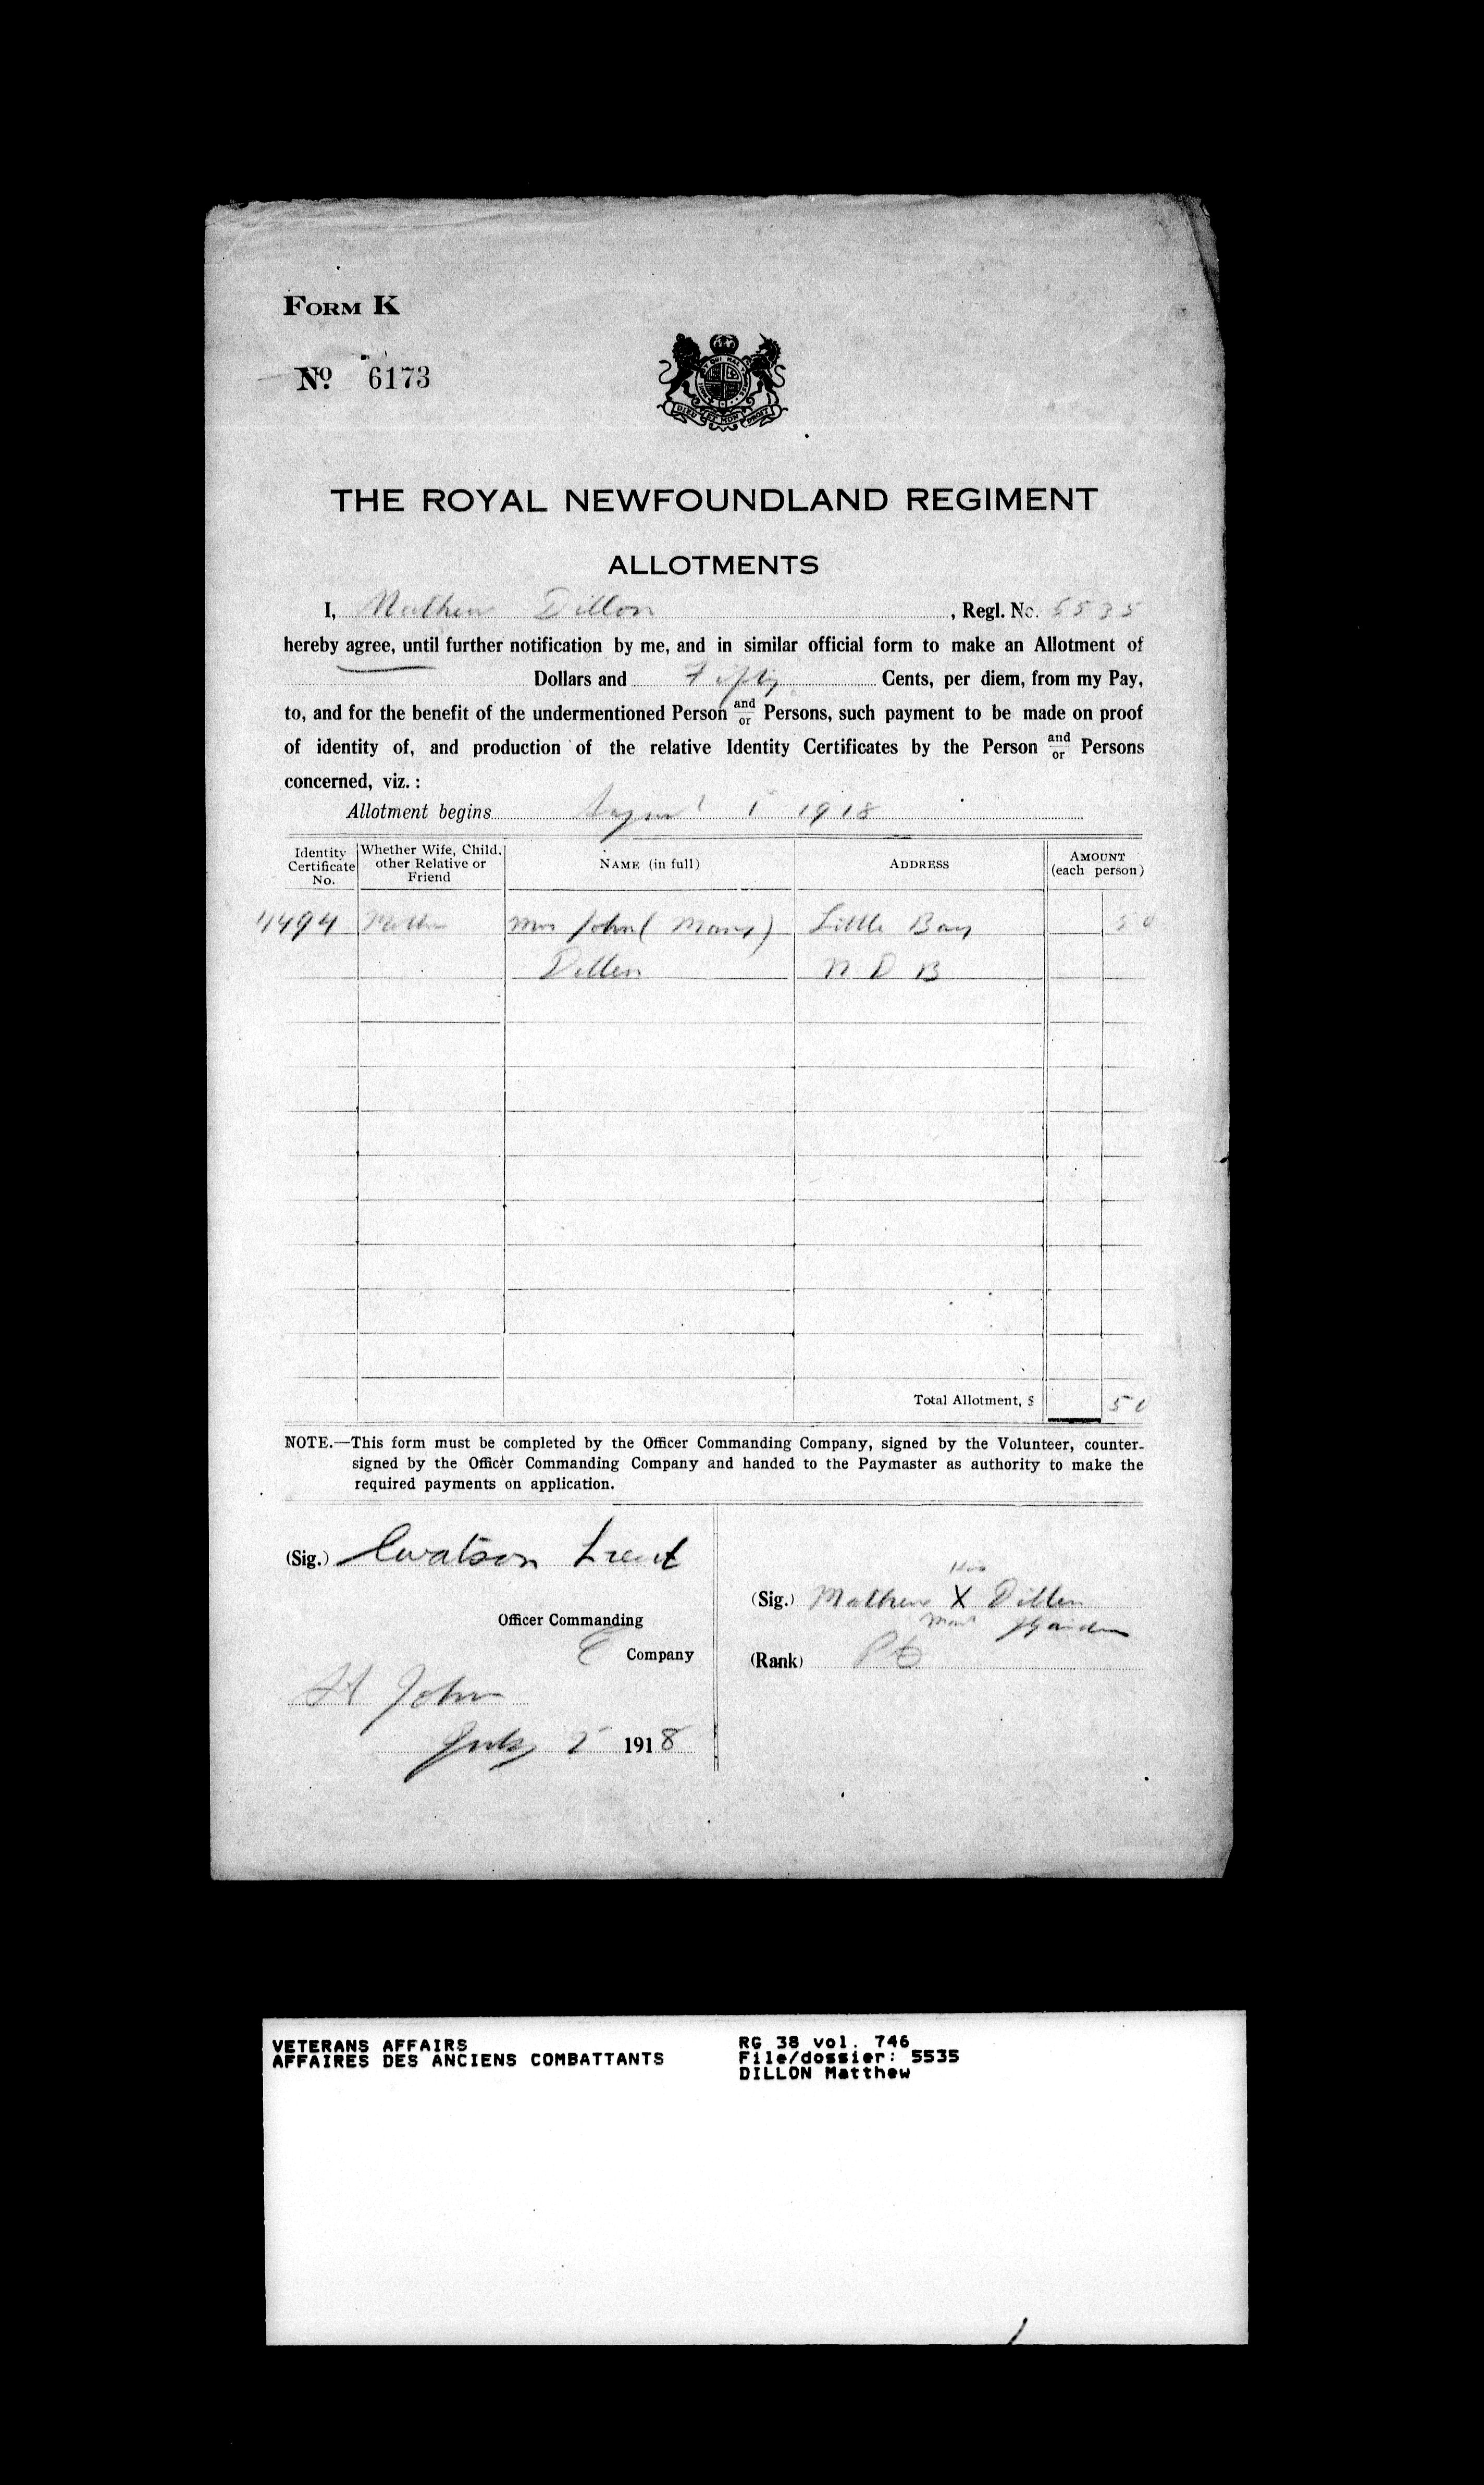 FORM K
No. 6173
THE ROYAL NEWFOUNDLAND REGIMENT
ALLOTMENTS
I, Mathew Dillon, Regl. No. 5535
hereby agree, until further notification by me, and in similar official form to make an Allotment of
Dollars and Fifty Cents, per diem, from my Pay,
to, and for the benefit of the undermentioned Person and/or Persons, such payment to be made on proof
of identity of, and production of the relative Identity Certificates by the Person and/or Persons
concerned, viz.:
Allotment begins August 1 1918
Identity Certificate No. Whether Wife, Child, other Relative or Friend NAME (in full) ADDRESS AMOUNT (each person)
4494 Mother Mrs John (Mary) Little Bay 50
Dillon N D B
Total Allotment, $ 50
NOTE.—This form must be completed by the Officer Commanding Company, signed by the Volunteer, counter-
signed by the Officer Commanding Company and handed to the Paymaster as authority to make the
required payments on application.
(Sig.) C Watson Lieut
Officer Commanding
E Company
St John
July 5 1918
his
(Sig.) Mathew X Dillon
mark
(Rank) Pte
VETERANS AFFAIRS
AFFAIRES DES ANCIENS COMBATTANTS
RG 38 vol. 746
File/dossier: 5535
DILLON Matthew